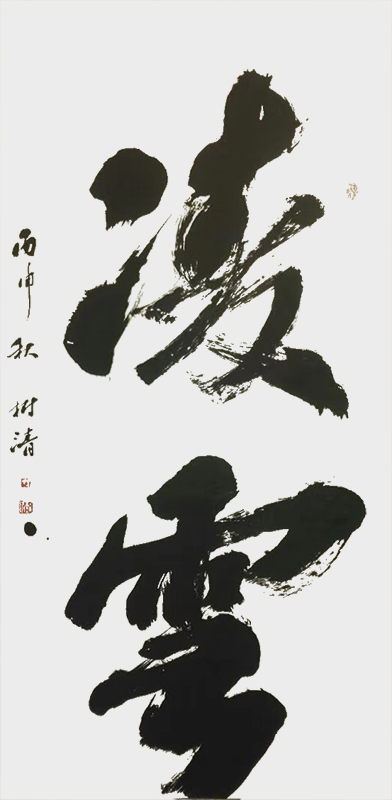 凌雲
丙申秋 樹清